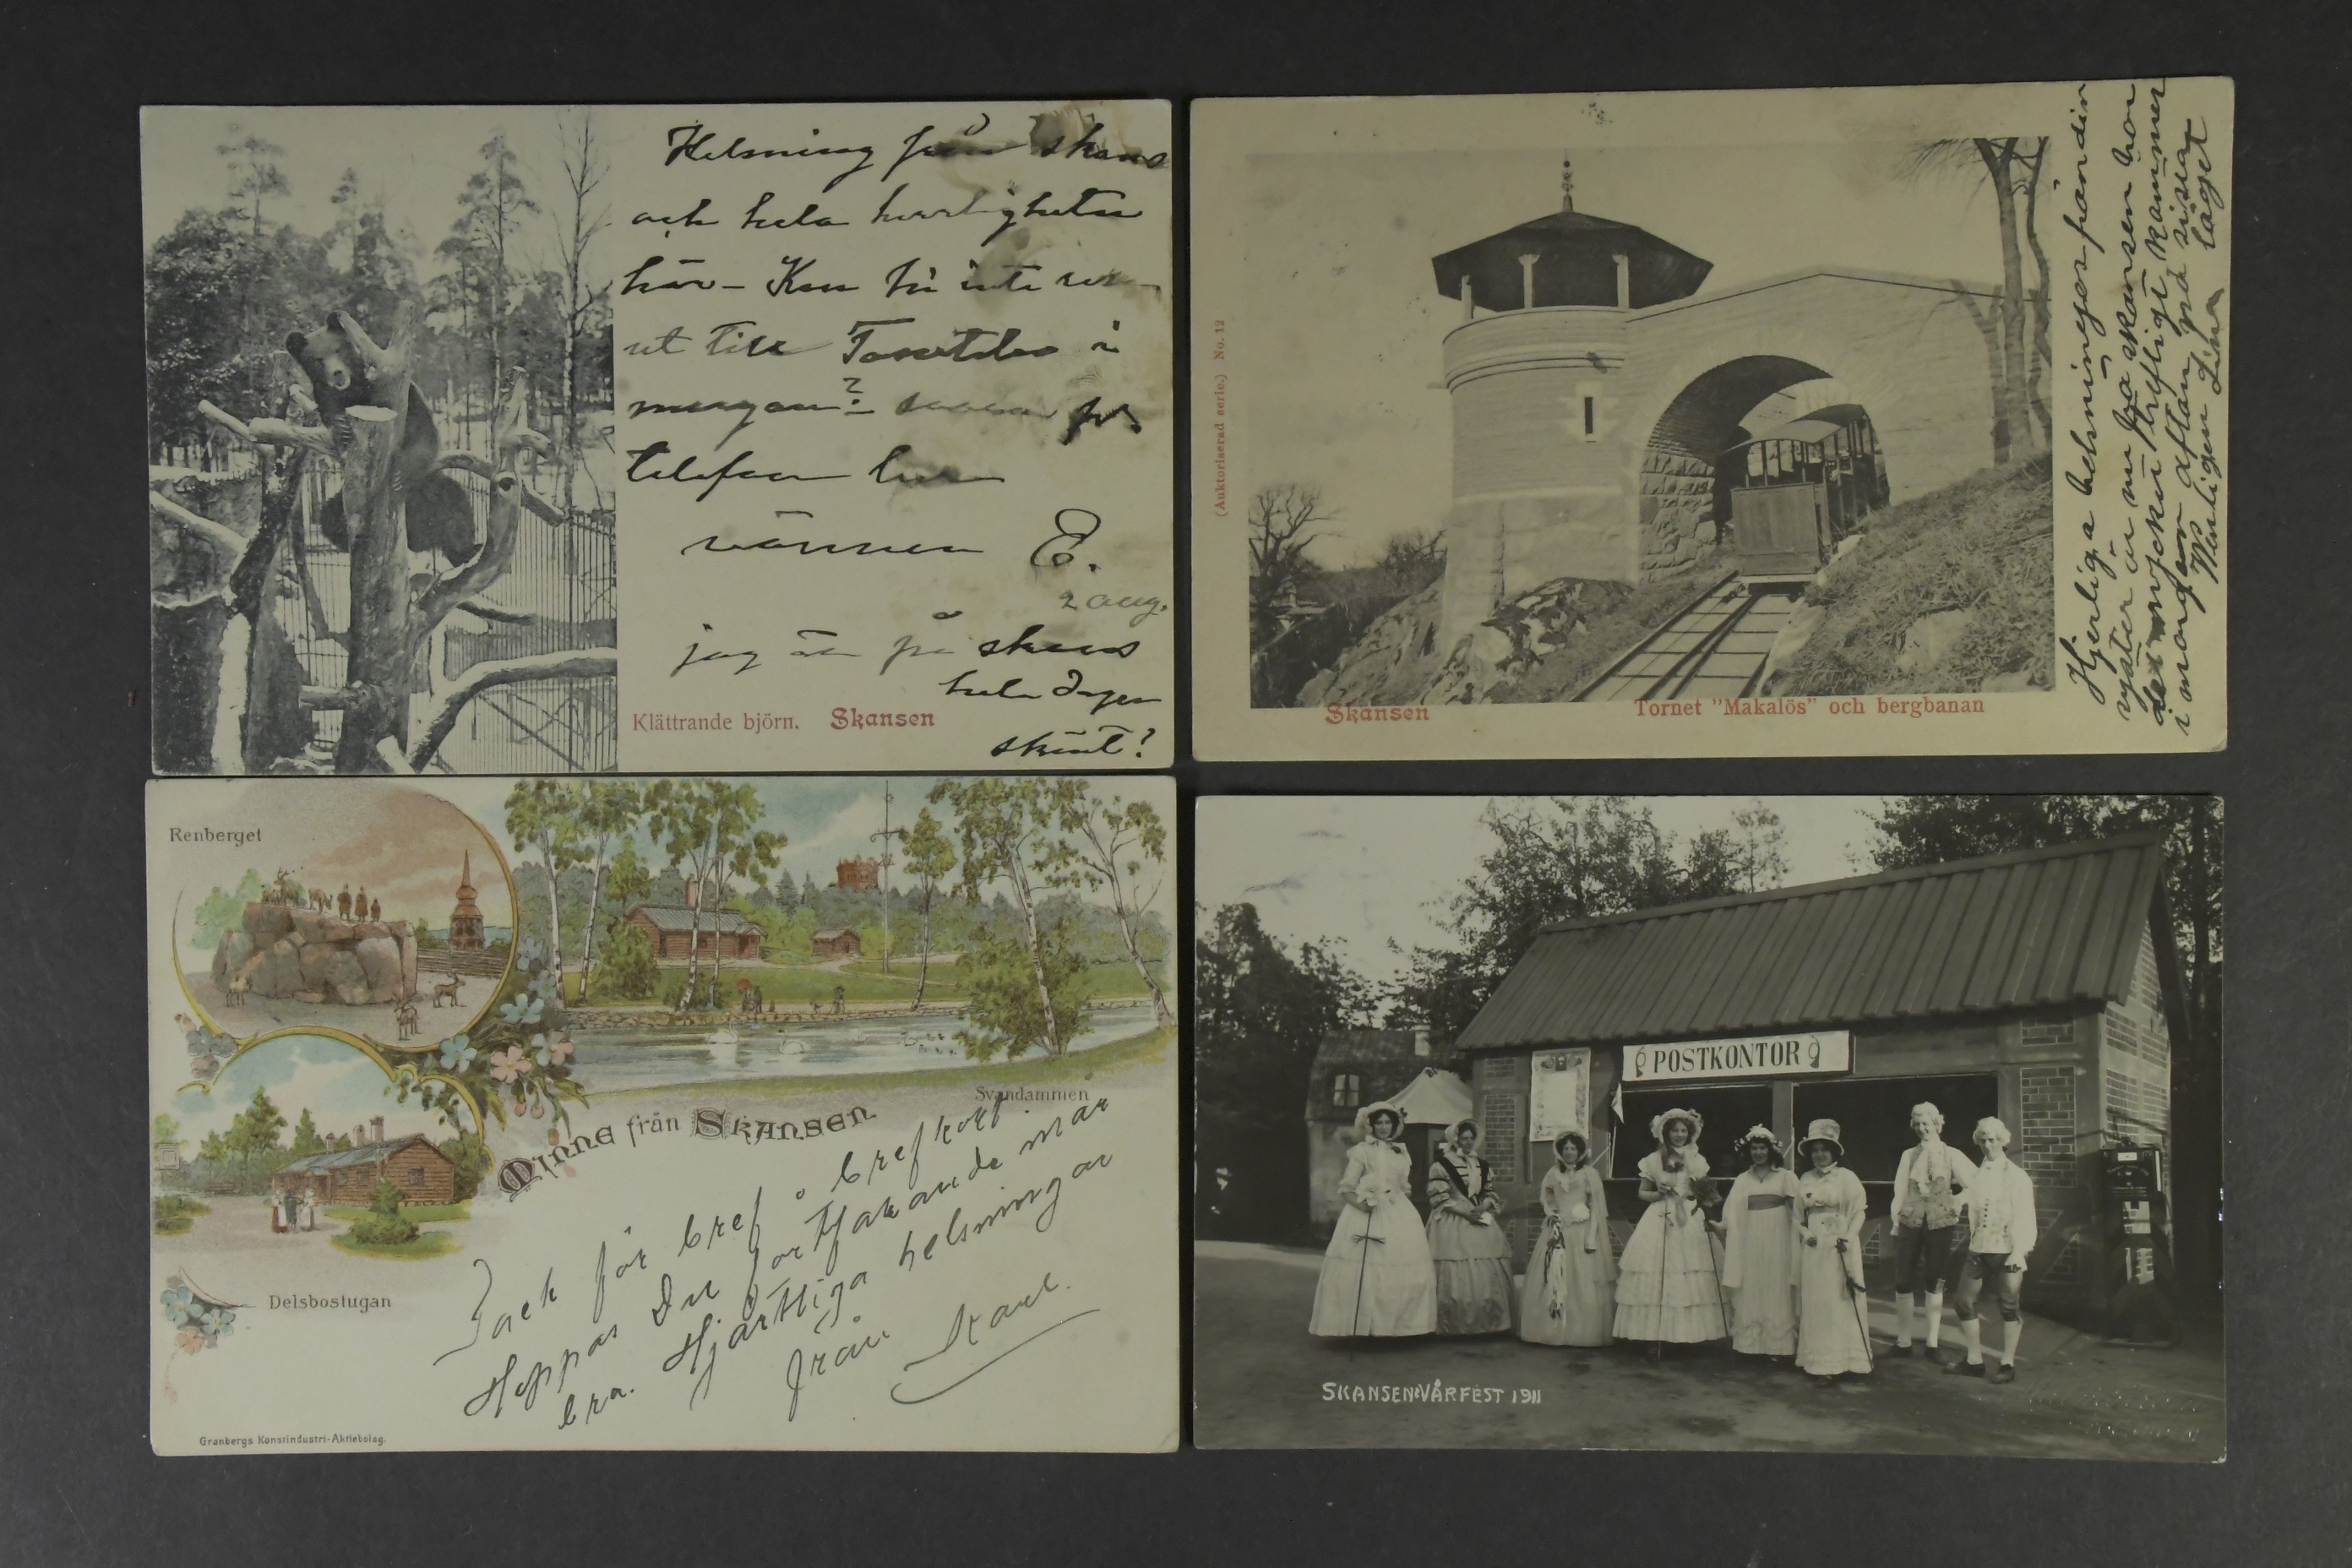 Helsning från Skans
och hela herrligheten
här – Kan Ni inte
ut till i
morgon?
telefon
vännen E.
2 aug.
jag är på Skans
hela dagen
skönt?
Klättrande björn. Skansen
(Auktoriserad serie.) No. 12
Skansen
Tornet "Makalös" och bergbanan
Hjertliga helsningar från din
syster är nu på skansen har
det mycket trefligt kommer
i morgon aftan på sista
tåget
Vänligen
Renberget
Svandammen
Minne från Skansen
Delsbostugan
Tack för bref o brefkort
Hoppas Du fortfarande mår
bra. Hjärtliga helsningar
från
Granbergs Konstindustri-Aktiebolag.
POSTKONTOR
SKANSENS VÅRFEST 1911